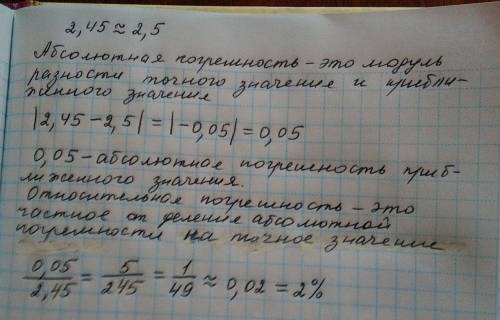 2,45 ≈ 2,5
Абсолютная погрешность – это модуль
разности точного значение и прибли-
женного значения
|2,45 – 2,5| = |–0,05| = 0,05
0,05 – абсолютное погрешность приб-
лиженного значения.
Относительная погрешность – это
частное от деление абсолютной
погрешности на точное значение
0,05/2,45 = 5/245 = 1/49 ≈ 0,02 = 2%